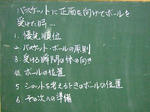 バスケットに正面を向けてボールを
受けて時…
1. 優先順位
2. バスケット・ボールの原則
3. 受ける瞬間の体の向き
4. ボールの位置
5. シュートを考えるときのボールの位置
6. その次への準備